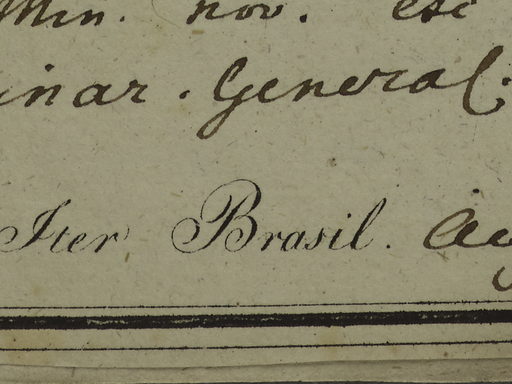 Min. nov. ese
inar. General.
Iter Brasil.